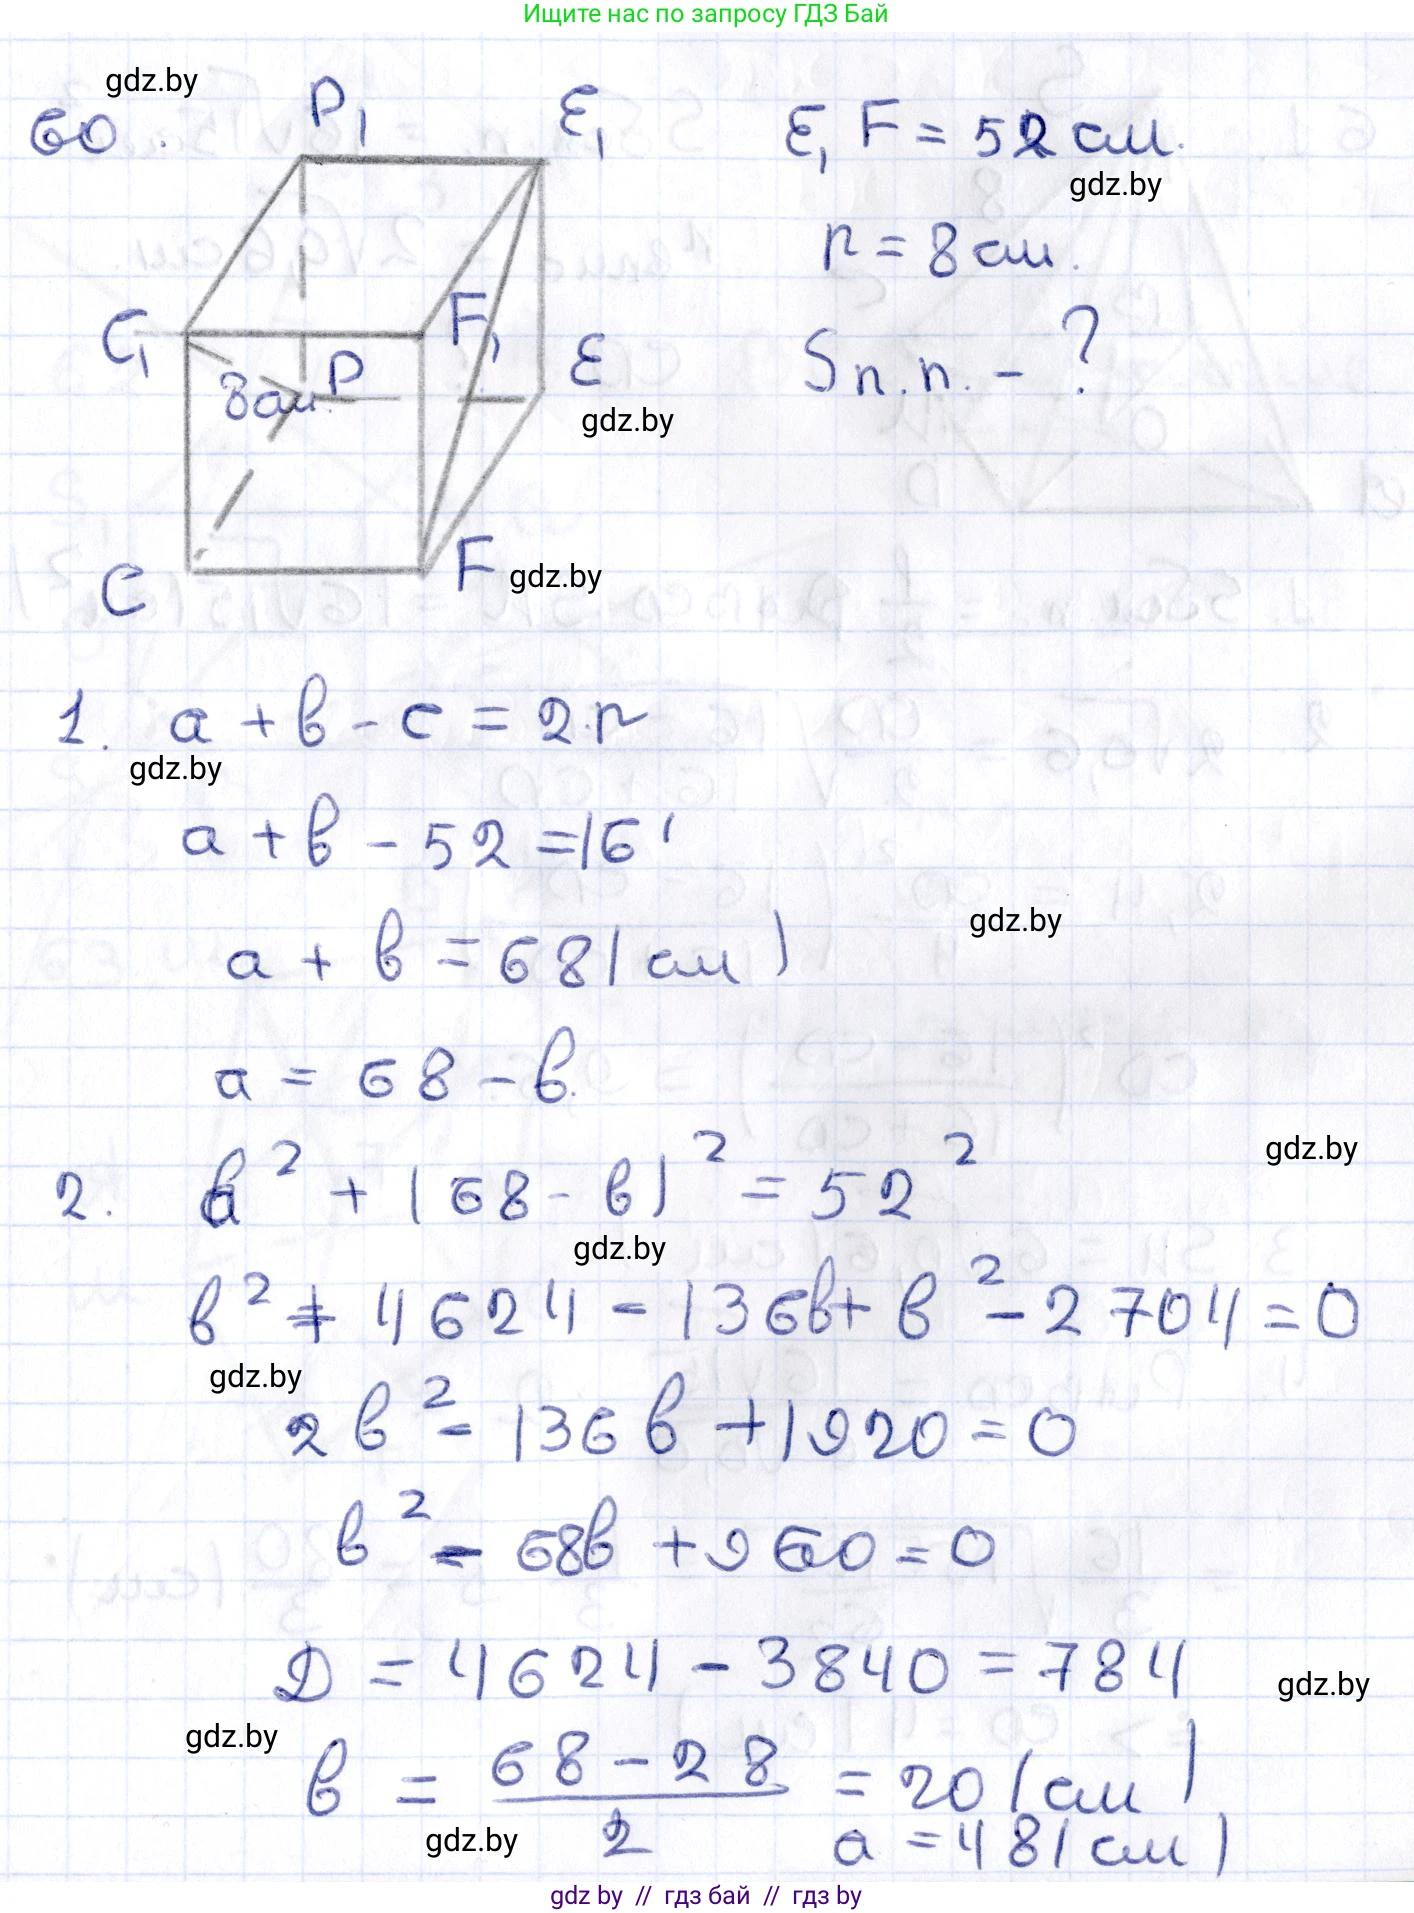 Ищите нас по запросу ГДЗ Бай
gdz.by
60.
P₁ E₁
E₁F = 52 см.
gdz.by
r = 8 см.
C₁ F₁
8 см. P E
Sп.п. - ?
gdz.by
C F gdz.by
1. a + b - c = 2·r
gdz.by
a + b - 52 = 16
a + b = 68 (см)
gdz.by
a = 68 - b.
gdz.by
2. b² + (68 - b)² = 52²
gdz.by
b² + 4624 - 136b + b² - 2704 = 0
gdz.by
2b² - 136b + 1920 = 0
b² - 68b + 960 = 0
D = 4624 - 3840 = 784
gdz.by
gdz.by
b = (68 - 28)/2 = 20 (см)
gdz.by
a = 48 (см)
gdz by // гдз бай // gdz by